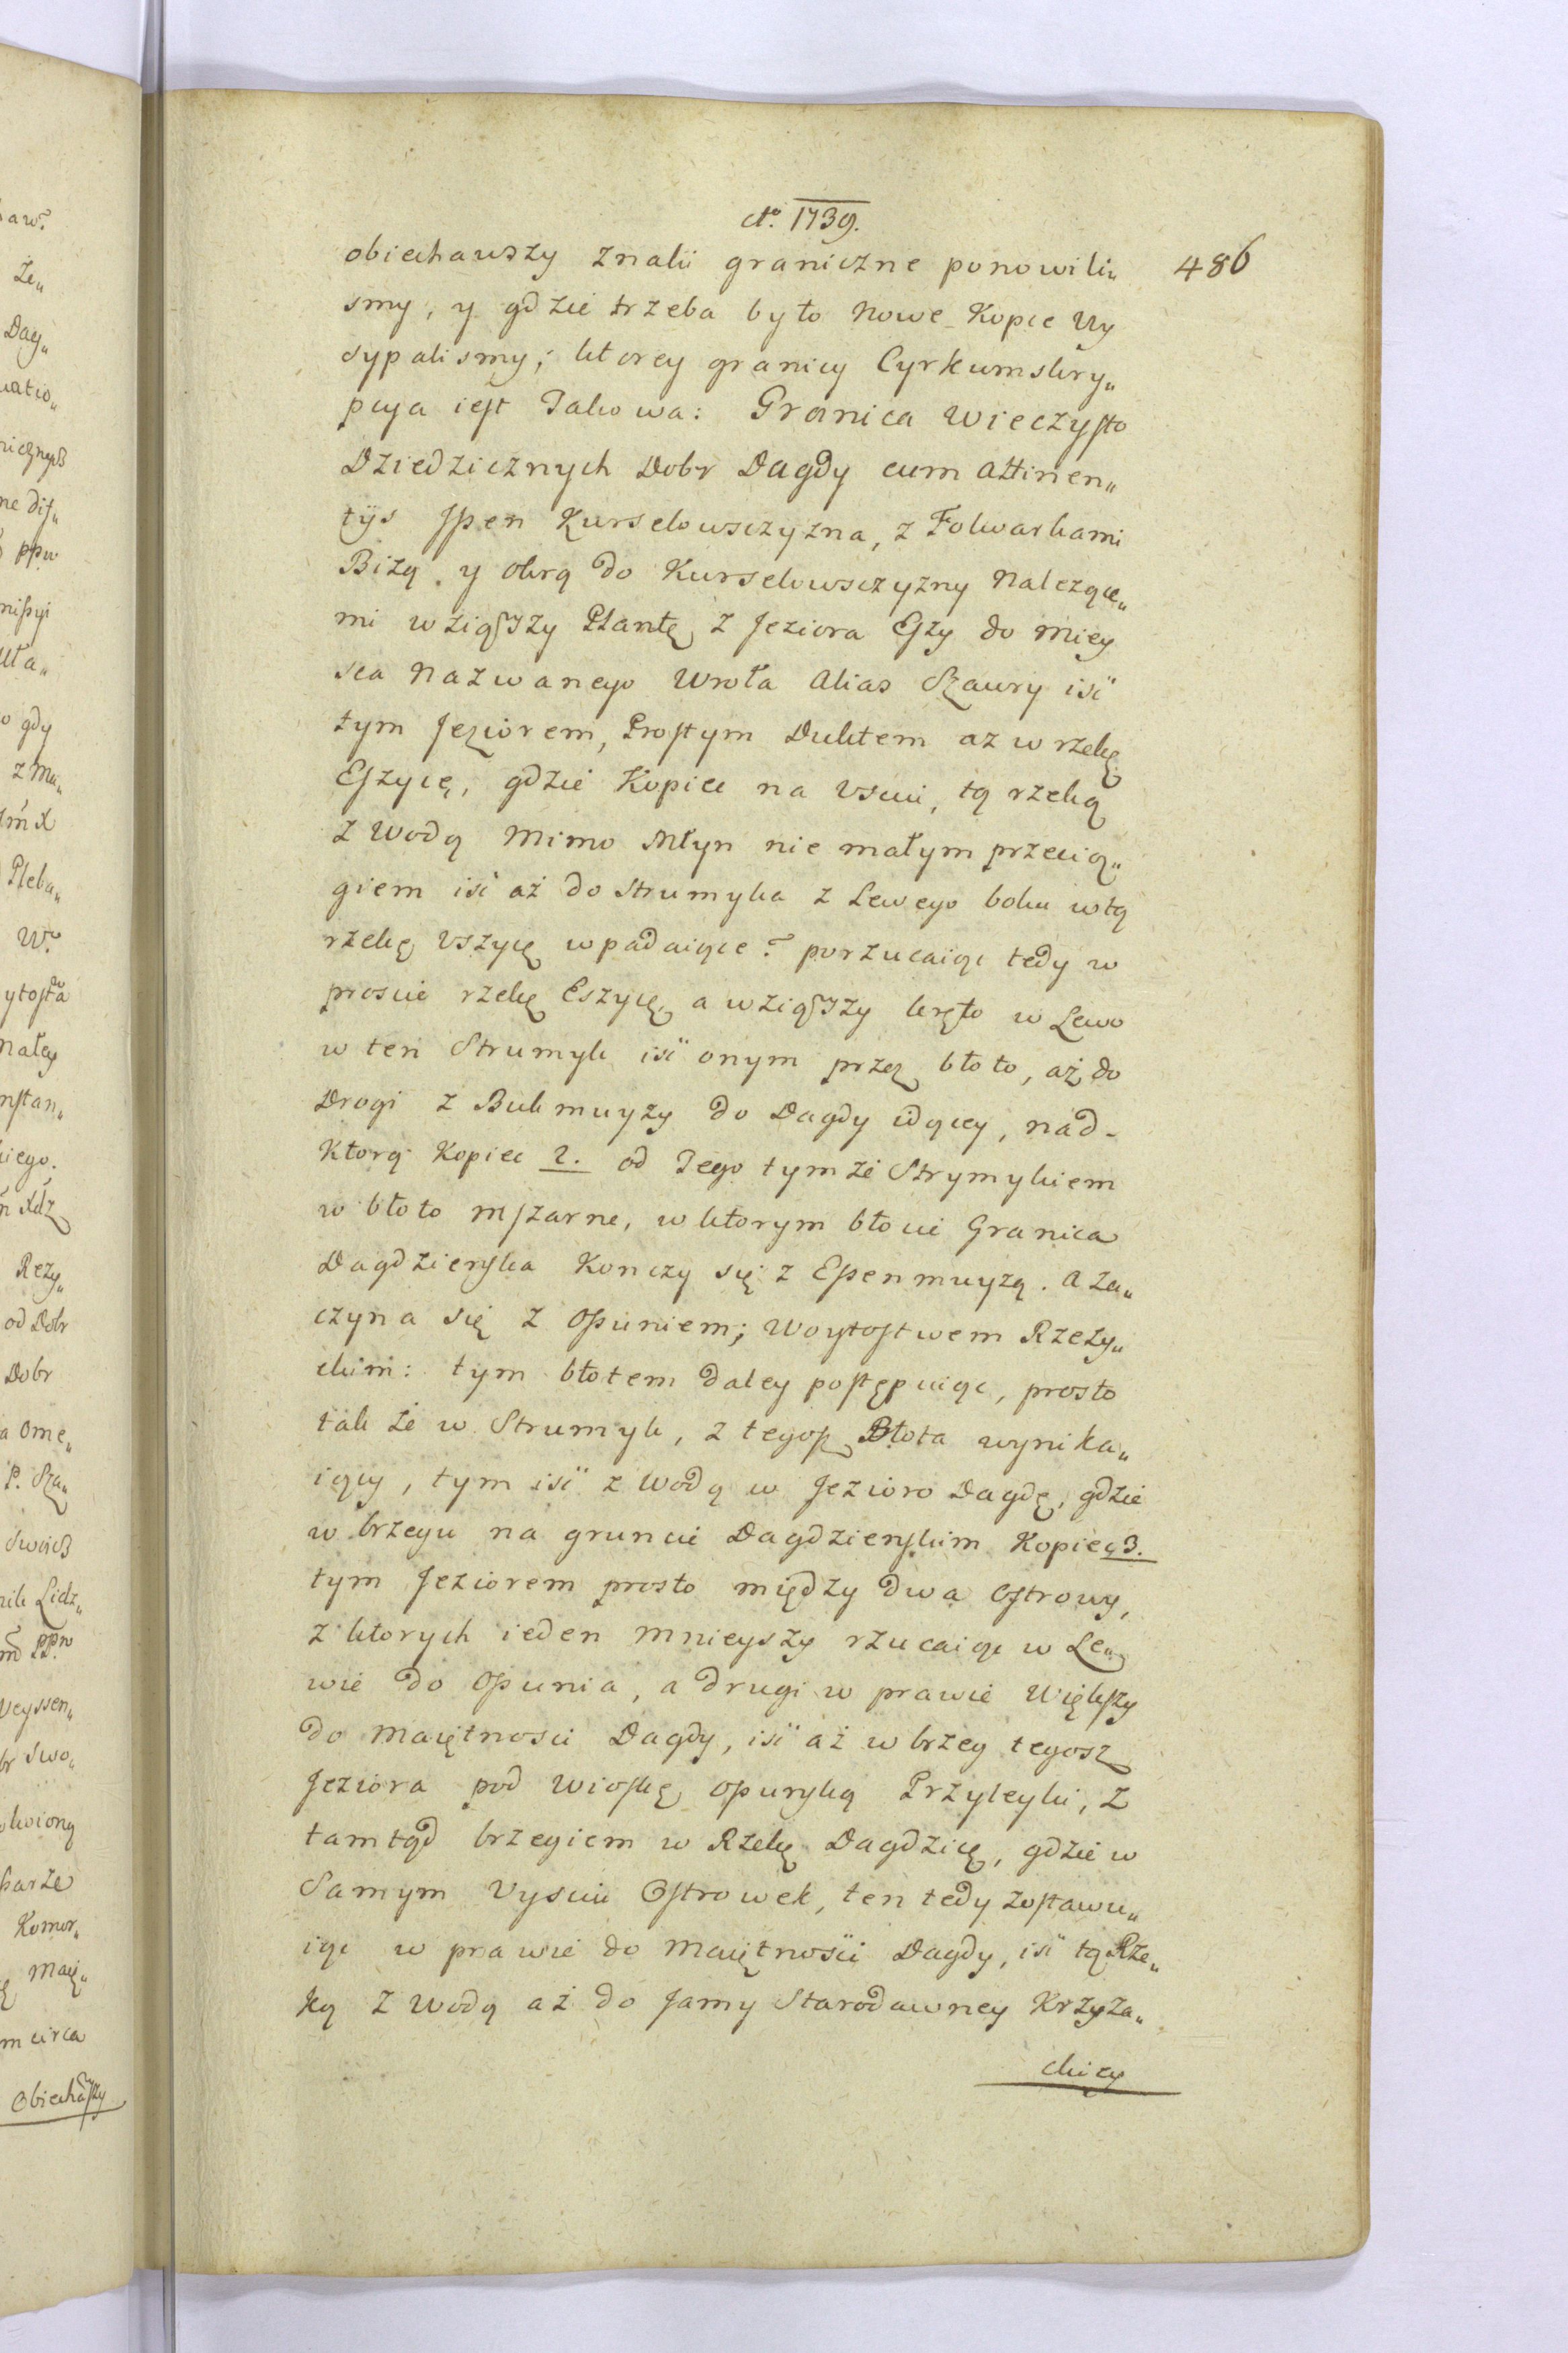 Ao. 1739.
486
obiechawszy znaki graniczne ponowili„
smy, y gdzie trzeba było nowe Kopce Vy
sypalismy; ktorey granicy Cyrkumskry„
pcya iest Takowa: Granica wieczysto
Dziedzicznych Dobr Dagdy cum attinen„
tÿs Jpen Kurselowszczyzna, z Folwarkami
Bizą y Okrą do Kurselowszczyzny nalezące„
mi wziąſszy Plantę z Jeziora Eſzy do miey
sca nazwanego Wrota alias Szawry iść
tym Jeziorem, Proſtym Duktem az w rzekę
Eſzycę, gdzie Kopiec na Vsciu, tą rzeką
z wodą mimo Młyn nie małym przecią„
giem iść aż do Strumyka z Lewego boku w tą
rzekę Vszycę wpadaiące? porzucaiąc tedy w
proscie rzekę Eszycę, a wziąſszy kręto w Lewo
w ten Strumyk iść onym przez błoto, aż do
Drogi z Bukmuyzy do Dagdy idącey, nad-
Ktorą Kopiec 2. od Tego tymże Strymykiem
w błoto mſzarne, w ktorym błocie Granica
Dagdzienſka Konczy się z Eſsenmuyzą. a za„
czyna się z Oſsuniem; Woytoſtwem Rzezy„
ckim: tym błotem daley poſtępuiąc, prosto
także w Strumyk, z tegoſz Błota wynika„
iący, tym iść z wodą w Jezioro Dagdę, gdzie
w brzegu na gruncie Dagdzienſkim Kopiec 3.
tym Jeziorem prosto między dwa Oſtrowy,
z ktorych ieden mnieyszy rzucaiąc w Le„
wie do Oſsunia, a drugi w prawie Większy
do maiętnosci Dagdy, iść aż w brzeg tegosz
Jeziora pod wioſkę oſsunſką Przyleyki, z
tamtąd brzegiem w Rzekę Dagdzicę, gdzie w
Samym Vysciu Oſtrowek, ten tedy zoſtawu„
iąc w prawie do maiętności Dagdy, iść tą Rze„
ką z wodą aż do Jamy Starodawney Krzyża„
ckiey